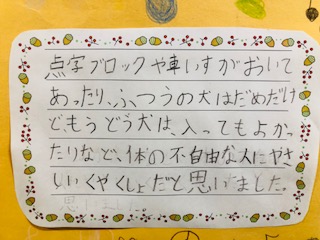 点字ブロックや車いすがおいて
あったり、ふつうの犬はだめだけ
ど、もうどう犬は、入ってもよかっ
たりなど、体の不自由な人にやさ
しいくやくしょだと思いました。
思いました。